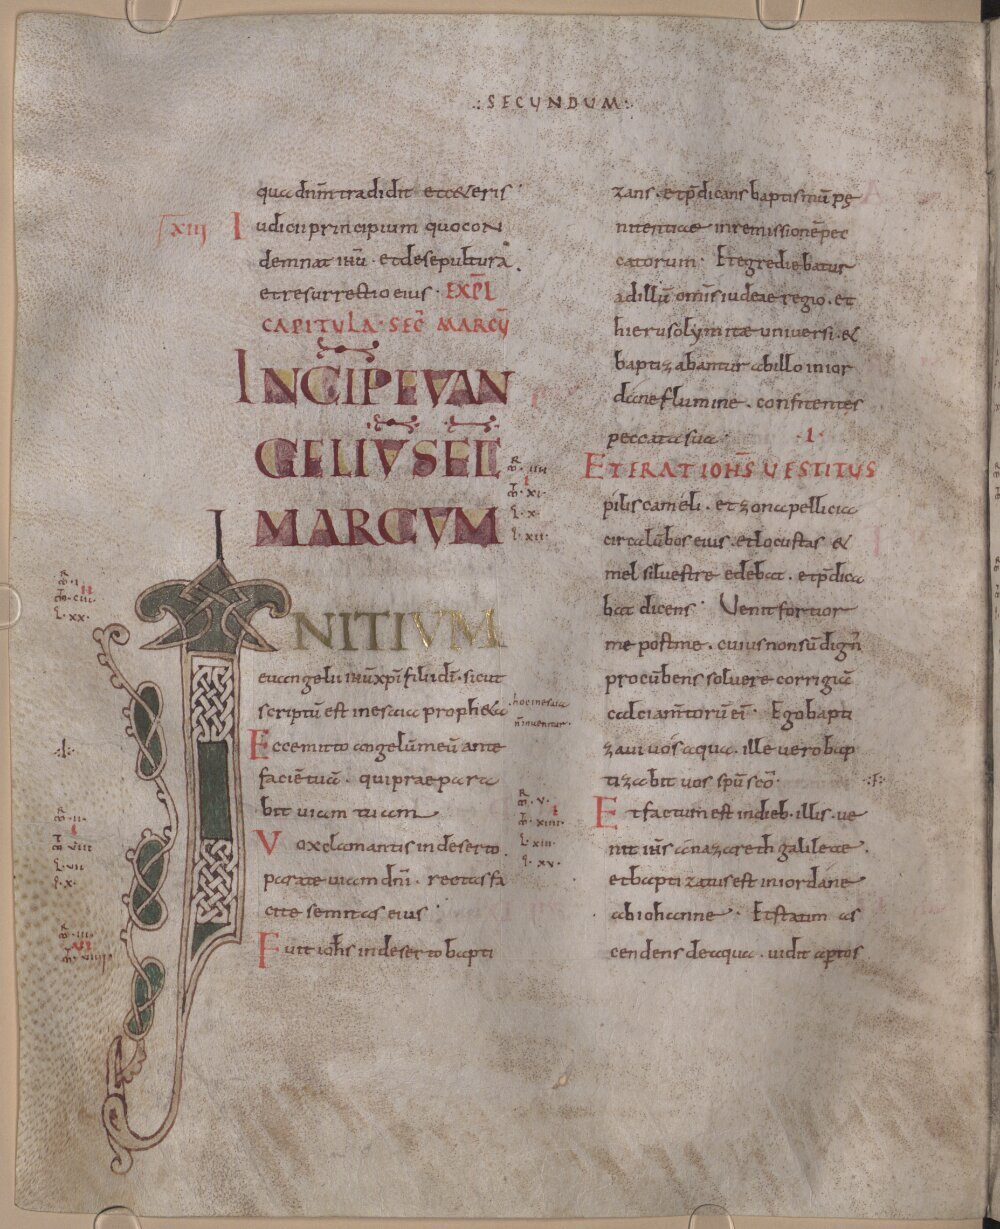 .:SECUNDUM:.
qua dn̄m tradidit et ceteris
xiii Iudicii principium quo con
demnat ih̄u · et de sepultura
et resurrectio eius · EXPL̄
CAPITULA · SEC̄ MARCŪ
INCIP EVAN
GELIŪ SEC̄
MARCVM
INITIVM
euangelii ih̄u xp̄i filii dī · sicut
scriptū est in esaia propheta
hoc in esaia
n̄ inuenitur
Ecce mitto angelū meū ante
faciē tuā · qui praepara
bit uiam tuam
Vox clamantis in deserto
parate uiam dn̄i · rectas fa
cite semitas eius
Fuit ioh̄s in deserto bapti
zans · et p̄dicans baptismū pę
nitentiae in remissionē pec
catorum · Et egrediebatur
ad illū omīs iudeae regio · et
hierusolymitae uniuersi · &
baptizabantur ab illo in ior
dane flumine · confitentes
peccata sua · I ·
ET ERAT IOH̄S VESTITUS
pilis cameli · et zona pellicia
circa lūbos eius · et locustas &
mel siluestre edebat · et p̄dica
bat dicens · Uenit fortior
me post me · cuius non sū dign̄
procūbens soluere corrigiā
calciam̄torū ei · Ego bapti
zaui uos aqua · ille uero bap
tizabit uos sp̄u sc̄o ·
Et factum est in dieb · illis · ue
nit ih̄s a nazareth galileae ·
et baptizatus est in iordane
ab iohanne · Et statim as
cendens de aqua · uidit aptos